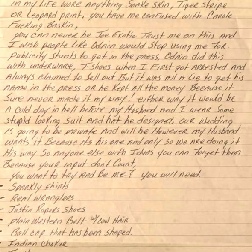 in my life wore anything Snake Skin, Tiger stripe
or Leopard print, you have me confused with Carole
Fucking Baskin,
you can never be Joe Exotic Trust me on this and
I wish people like would stop using me for
Publicity Stunts to get in the press. did this
with underwear, T-shirts when I first got arrested and
Always claimed to sell out But it was all a lie to get his
name in the press or he kept all the money Because it
sure never made it my way! either way it would be
a cold day in hell before my Husband and I wear some
stupid looking suit and not be designed. our wedding
is going to be private and will be however my Husband
wants it Because its his one and only so we are doing it
his way. So anyone else with Ideas you can forget them
Because your input dont Count,
you want to try and be me? you will need
- Sparkly shirts
- Real Wranglers
- Justin Ropers Shoes
- Plain Western Belt
- Ball cap that has been shaped.
- Indian choker